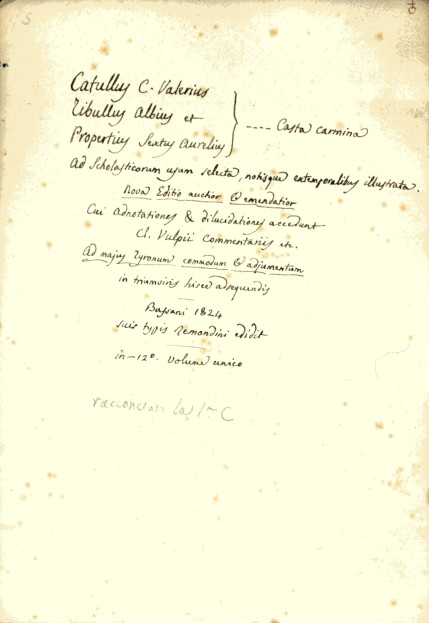 5
Catullus C. Valerius
Tibullus Albius et
Propertius Sextus Aurelius } ---- Casta carmina
Ad Scholasticorum usum selecta, notisque extemporalibus illustrata.
Nova Editio auctior & emendatior
Cui adnotationes & dilucidationes accedunt
Cl. Vulpii Commentariis etc.
Ad majus Tyronum commodum & adjumentum
in triumviris hisce adsequendis
Bassani 1824
suis typis Remondini edidit
in-12º. Volume unico
racconciar la 1ª C